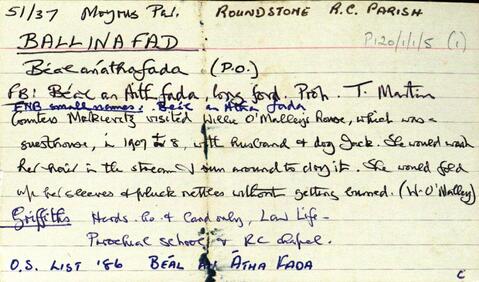 51/37 Moyrus Par. ROUNDSTONE R.C. PARISH
P120/1/1/5 (1)
BALLINAFAD
Béal an átha fada (P.O.)
FB: Béal an Áth fada, long ford. Prob. T. Martin
ENB small names: Béal an Átha fada
Countess Markievitz visited Willie O'Malley's house, which was a
guesthouse, in 1907 or 8, with husband & dog Jack. She would wash
her hair in the stream & run around to dry it. She would fold
up her sleeves & pluck nettles without getting burned. (W. O'Malley)
Griffiths Hards. Ho & Land only, Law Life -
Parochial school & RC chapel.
O.S. LIST '86 BÉAL AN ÁTHA FADA
C